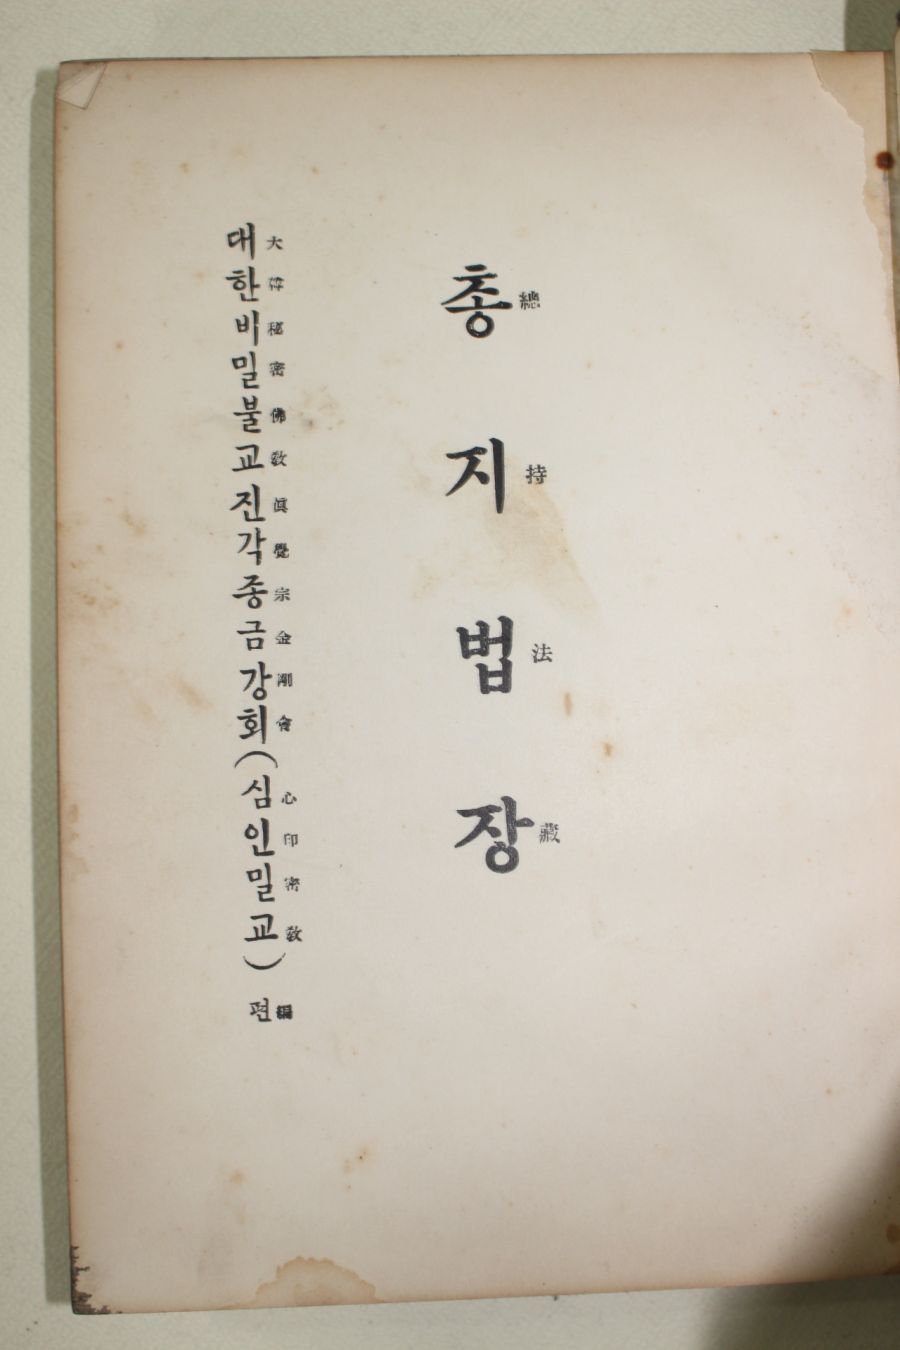 총지법장
總持法藏
대한비밀불교진각종금강회(심인밀교) 편
大韓秘密佛教眞覺宗金剛會心印密教 編